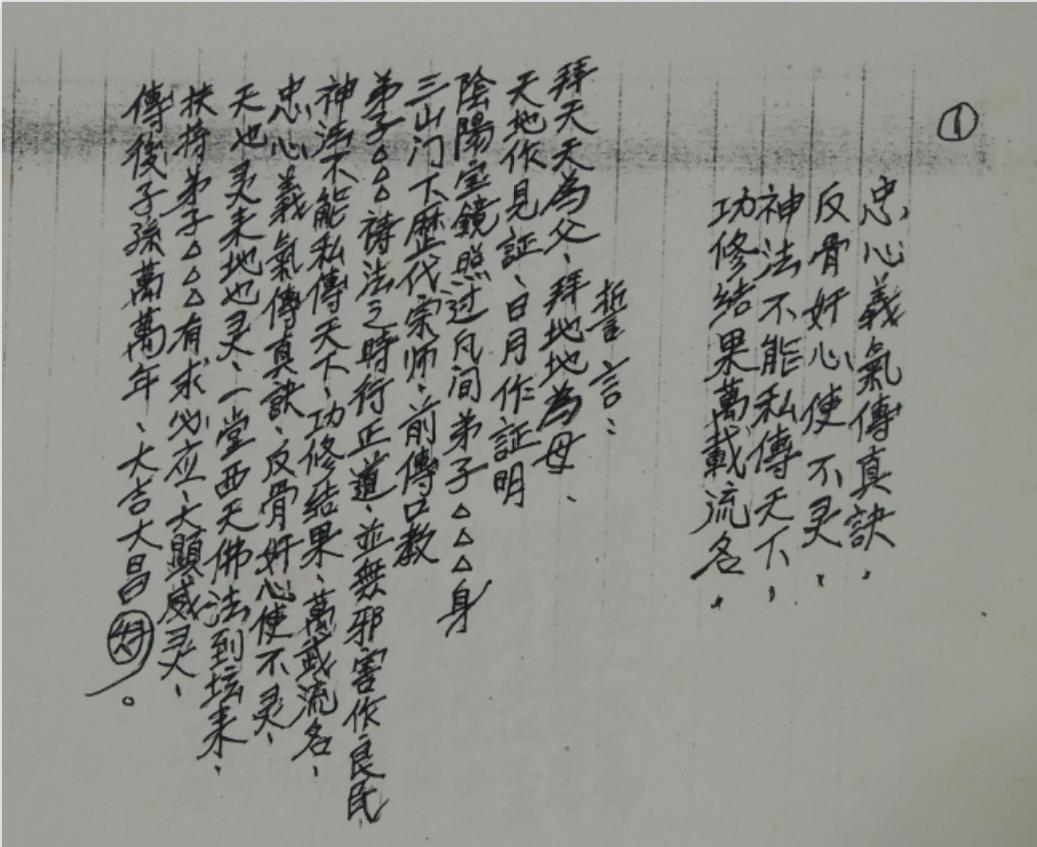 ①
忠心義氣傳真訣，
反骨奸心使不灵，
神法不能私傳天下，
功修結果萬載流名，
誓言：
拜天天為父、拜地地為母、
天地作見証、日月作証明
陰陽宝鏡照过凡间弟子△△△身
三山门下歷代宗师、前傳口教
弟子△△△禱法之時行正道、並無邪害作良民
神法不能私傳天下、功修結果、萬載流名，
忠心義氣傳真訣、反骨奸心使不灵、
天也灵来地也灵、一堂西天佛法到坛来，
扶持弟子△△△有求必应、大顯威灵、
傳後子孫萬萬年、大吉大昌好。